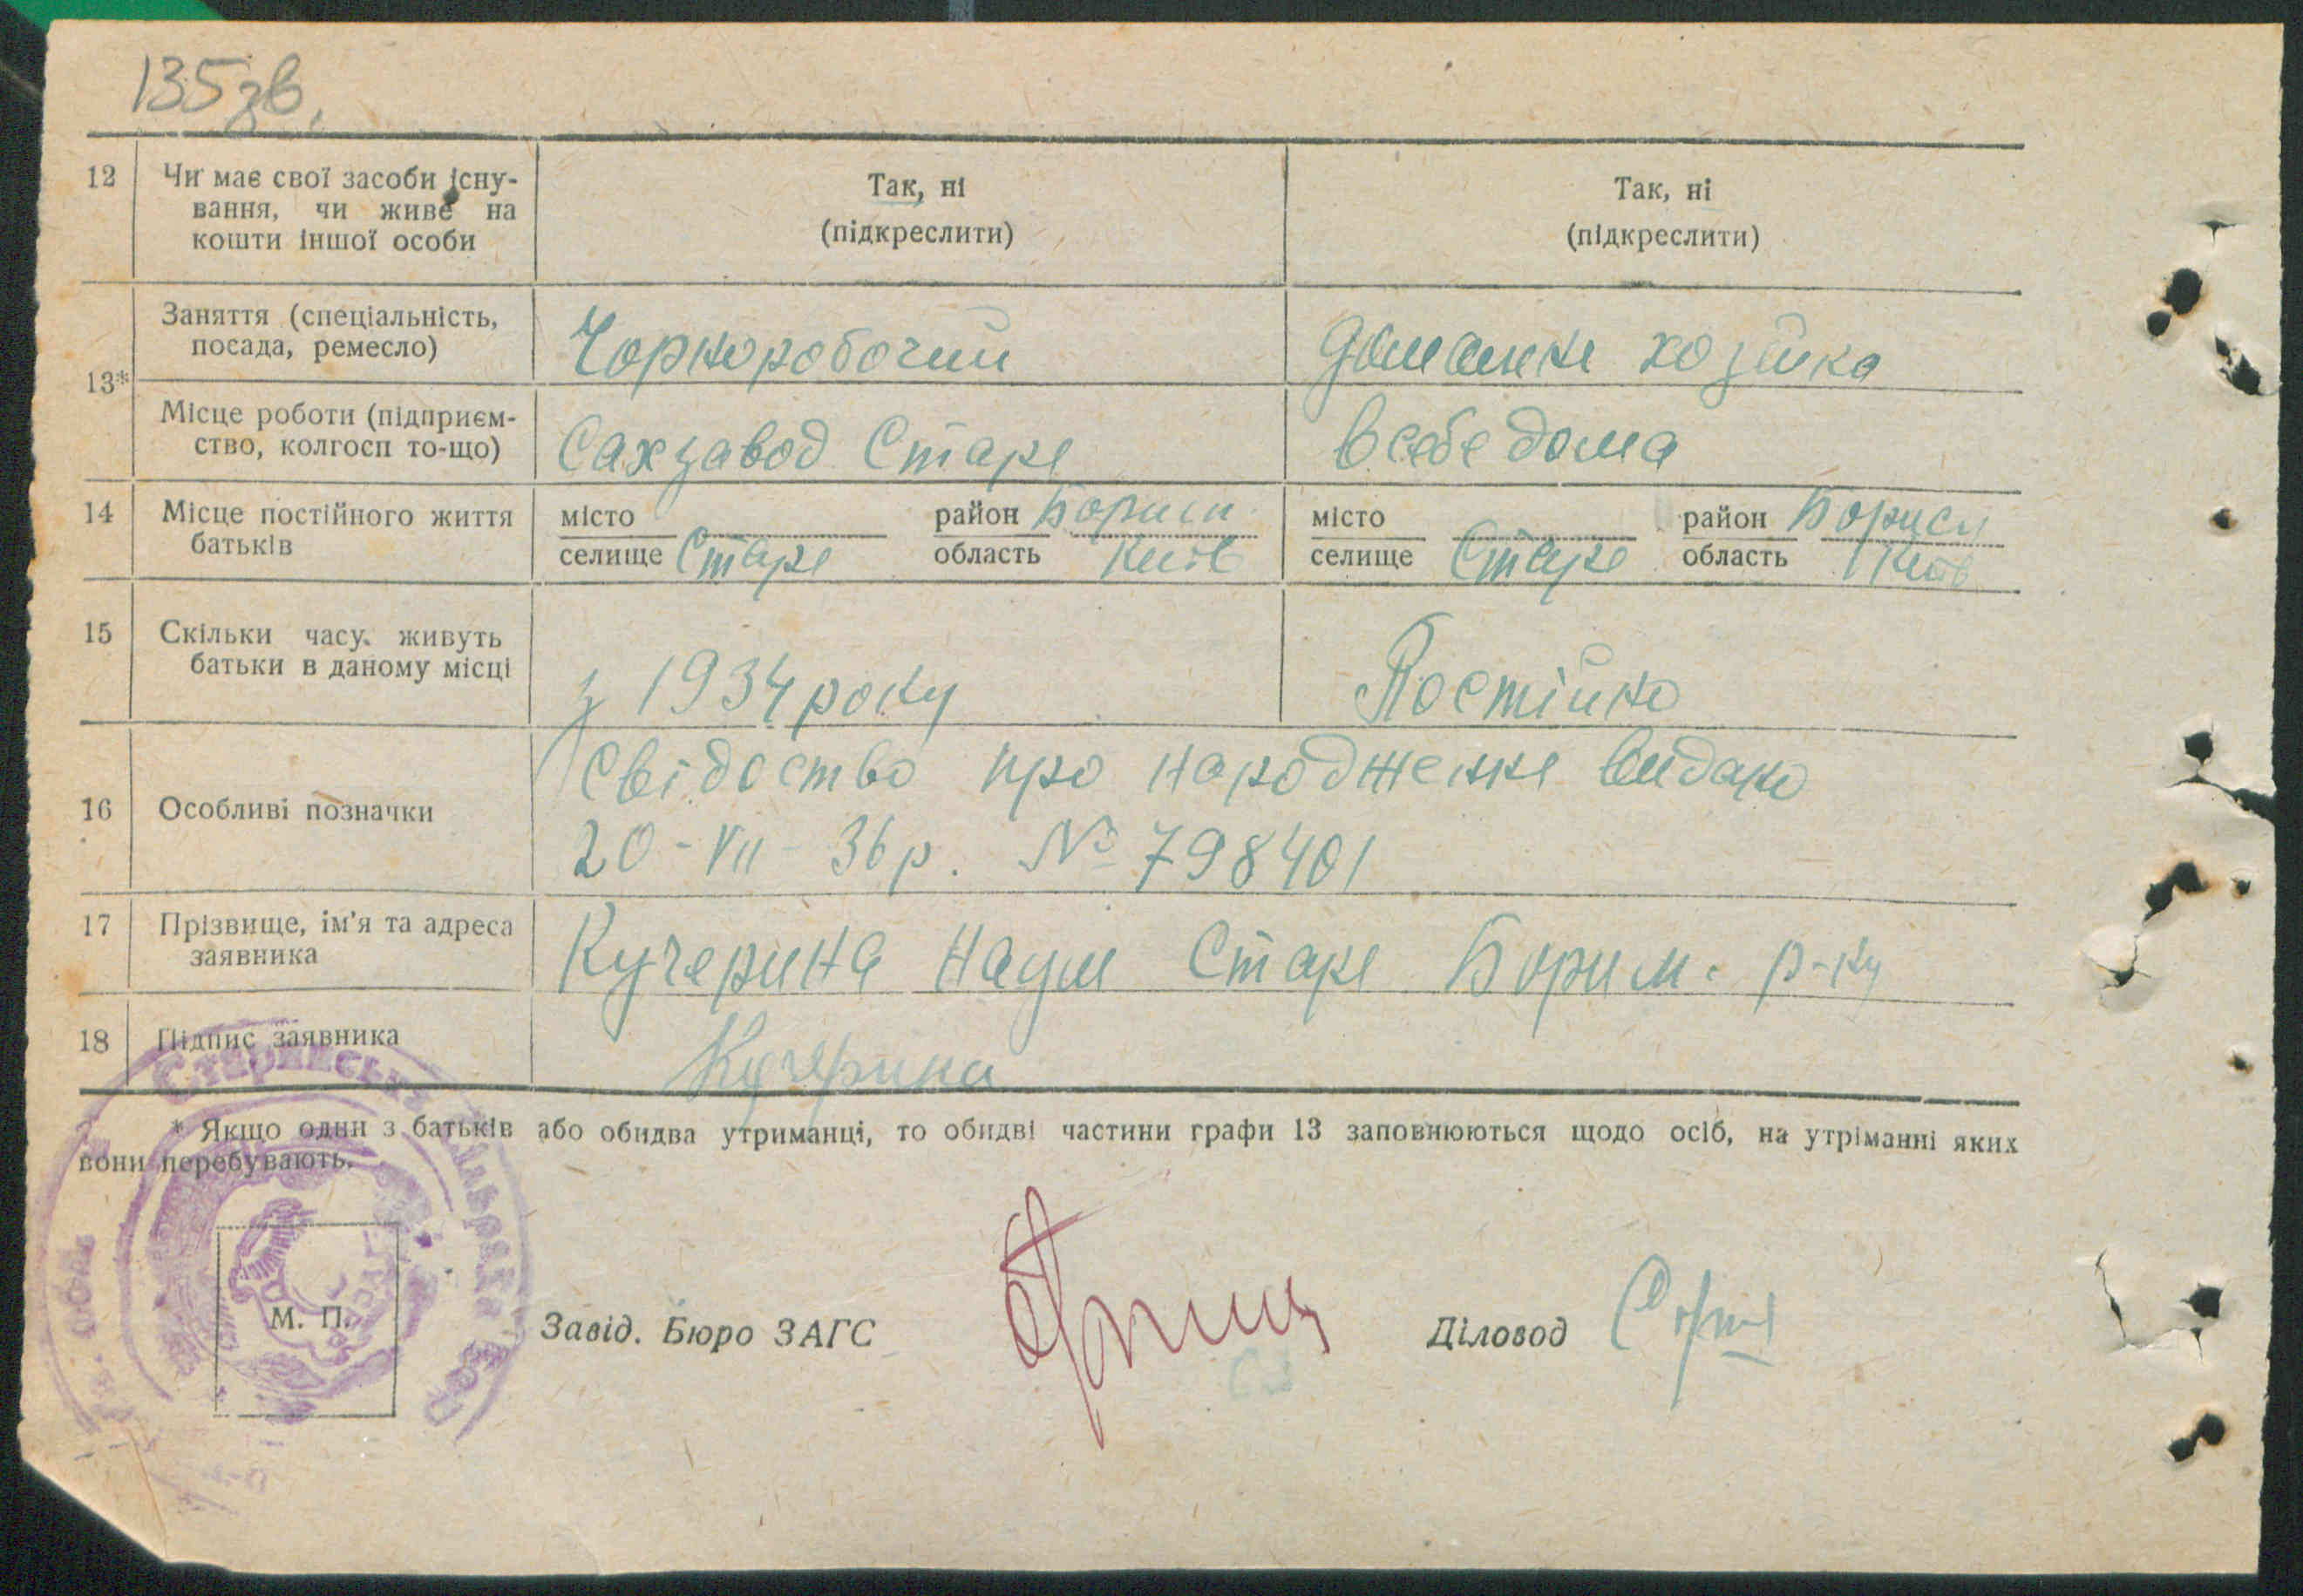 135 зв.
12 Чи має свої засоби існу-
вання, чи живе на
кошти іншої особи
Так, ні
(підкреслити)
Так, ні
(підкреслити)
13*
Заняття (спеціальність,
посада, ремесло)
Чорноробочий
домашня хозяйка
Місце роботи (підприєм-
ство, колгосп то-що)
Сахзавод Старе
в себе дома
14 Місце постійного життя
батьків
місто район Борисп
селище Старе область Київ
місто район Борисп
селище Старе область Київ
15 Скільки часу живуть
батьки в даному місці
з 1934 року
Постійно
16 Особливі позначки
Свідоство про народження видано
20-VII-36р. № 798401
17 Прізвище, ім'я та адреса
заявника
Кучерина Наум Старе р-ну
18 Підпис заявника
Кучерина
* Якщо один з батьків або обидва утриманці, то обидві частини графи 13 заповнюються щодо осіб, на утріманні яких
вони перебувають.
М. П.
Завід. Бюро ЗАГС
Діловод